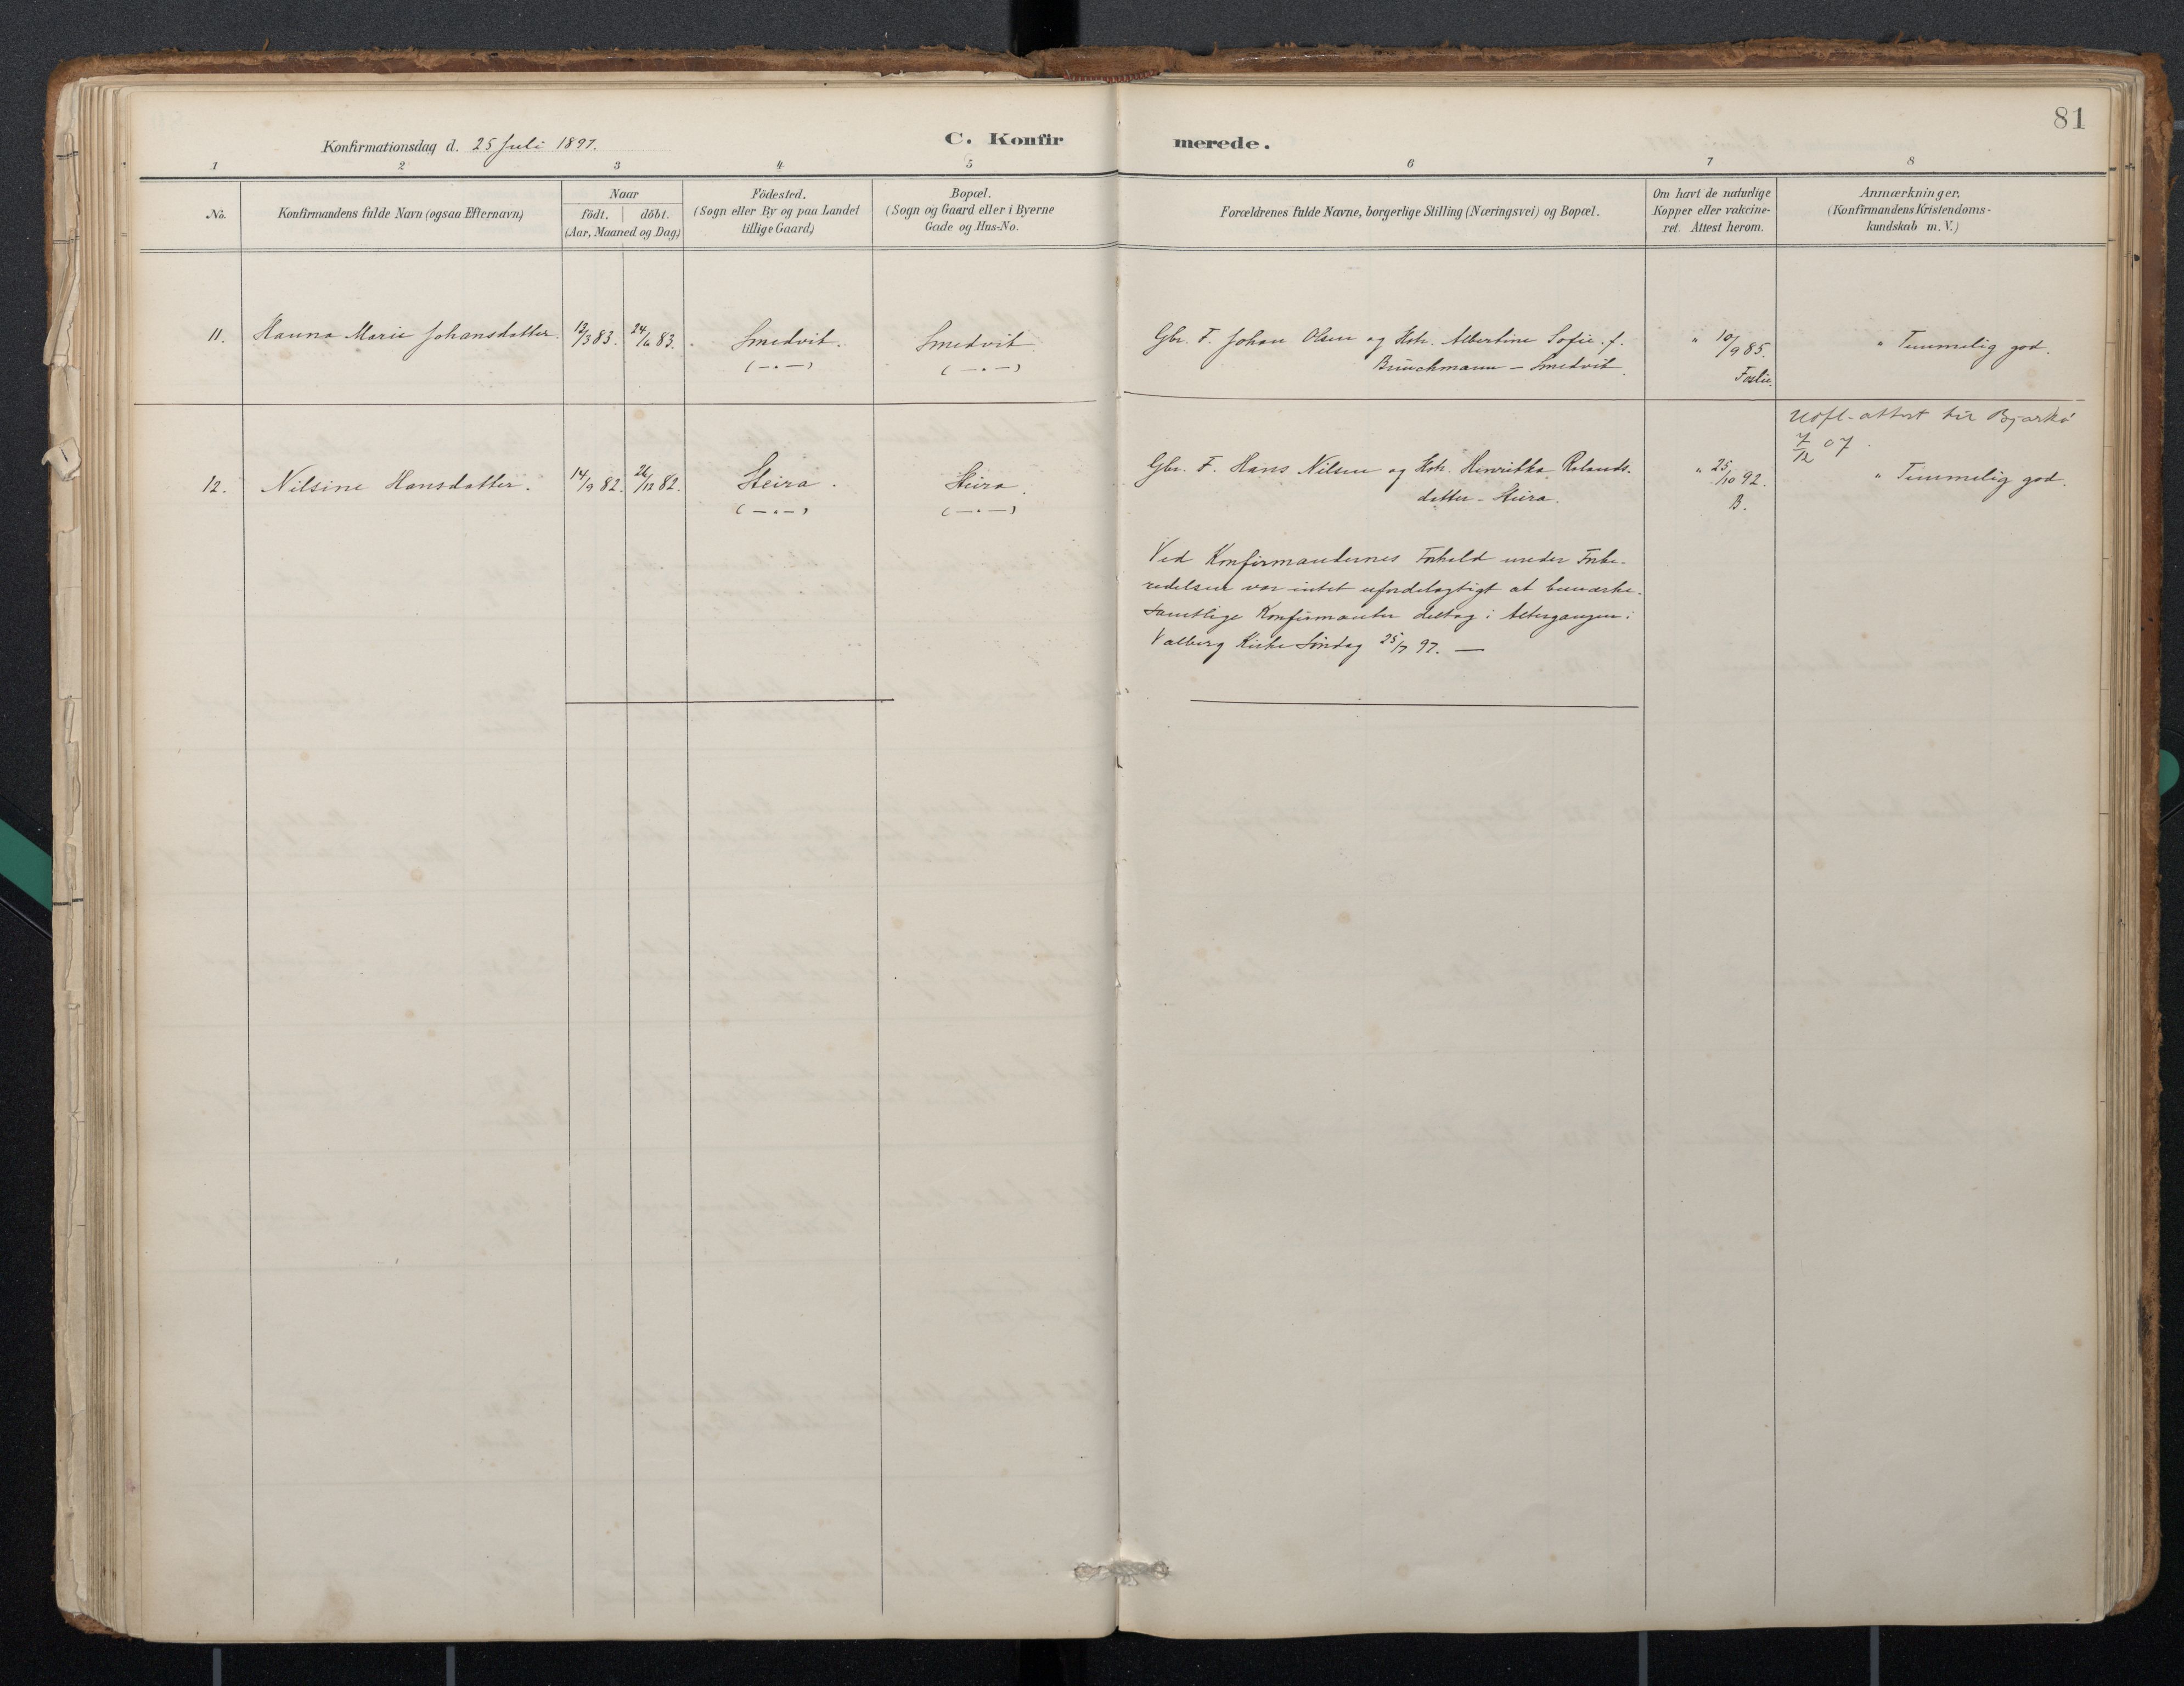 81
Konfirmationsdag d. 25 Juli 1897.
C. Konfirmerede.
1 2 3 4 5 6 7 8
No.
Konfirmandens fulde Navn (ogsaa Efternavn)
Naar
födt. döbt.
(Aar, Maaned og Dag)
Födested.
(Sogn eller By og paa Landet
tillige Gaard)
Bopæl.
(Sogn og Gaard eller i Byerne
Gade og Hus-No.
Forældrenes fulde Navne, borgerlige Stilling (Næringsvei) og Bopæl.
Om havt de naturlige
Kopper eller vakcine-
ret. Attest herom.
Anmærkninger.
(Konfirmandens Kristendoms-
kundskab m. V.)
11. Hanna Marie Johansdatter. 12/3 83. 24/6 83. Smedvik. Smedvik. Gbr. F. Johan Olsen og Hstr. Albertine Sofie f. " 10/9 85. " Temmelig god.
(—"—) (—"—) Brinchmann – Smedvik. Foslie.
Udfl-attest til Bjarkö
7/12 07.
12. Nilsine Hansdatter. 14/9 82. 26/12 82. Steira. Steira. Gbr. F. Hans Nilsen og Hstr. Henrikka Rolands- " 25/10 92. " Temmelig god.
(—"—) (—"—) datter – Steira. B.
Ved Konfirmandernes Forhold under Forbe-
redelsen var intet ufordelagtigt at bemærke.
Samtlige Konfirmanter deltog i Altergangen i
Valberg Kirke Söndag 25/7 97. —